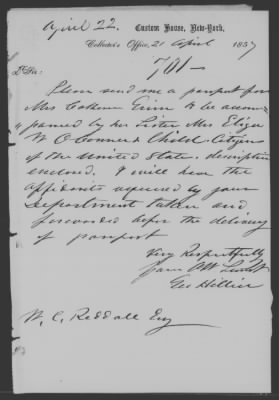 April 22.
Custom House, New-York,
Collector's Office, 21 April 1857
701-
Dr Sir:
Please send me a passport for
Mrs Erin to be accom
panied by her Sister Mrs Eliza
W O'Conner & Child Citizens
of the United State, description
enclosed. I will have the
affidavits required by your
department taken and
forwarded before the delivery
of passport
Very Respectfully
your Obt Servt
Geo Hillier
W. C. Reddall Esq